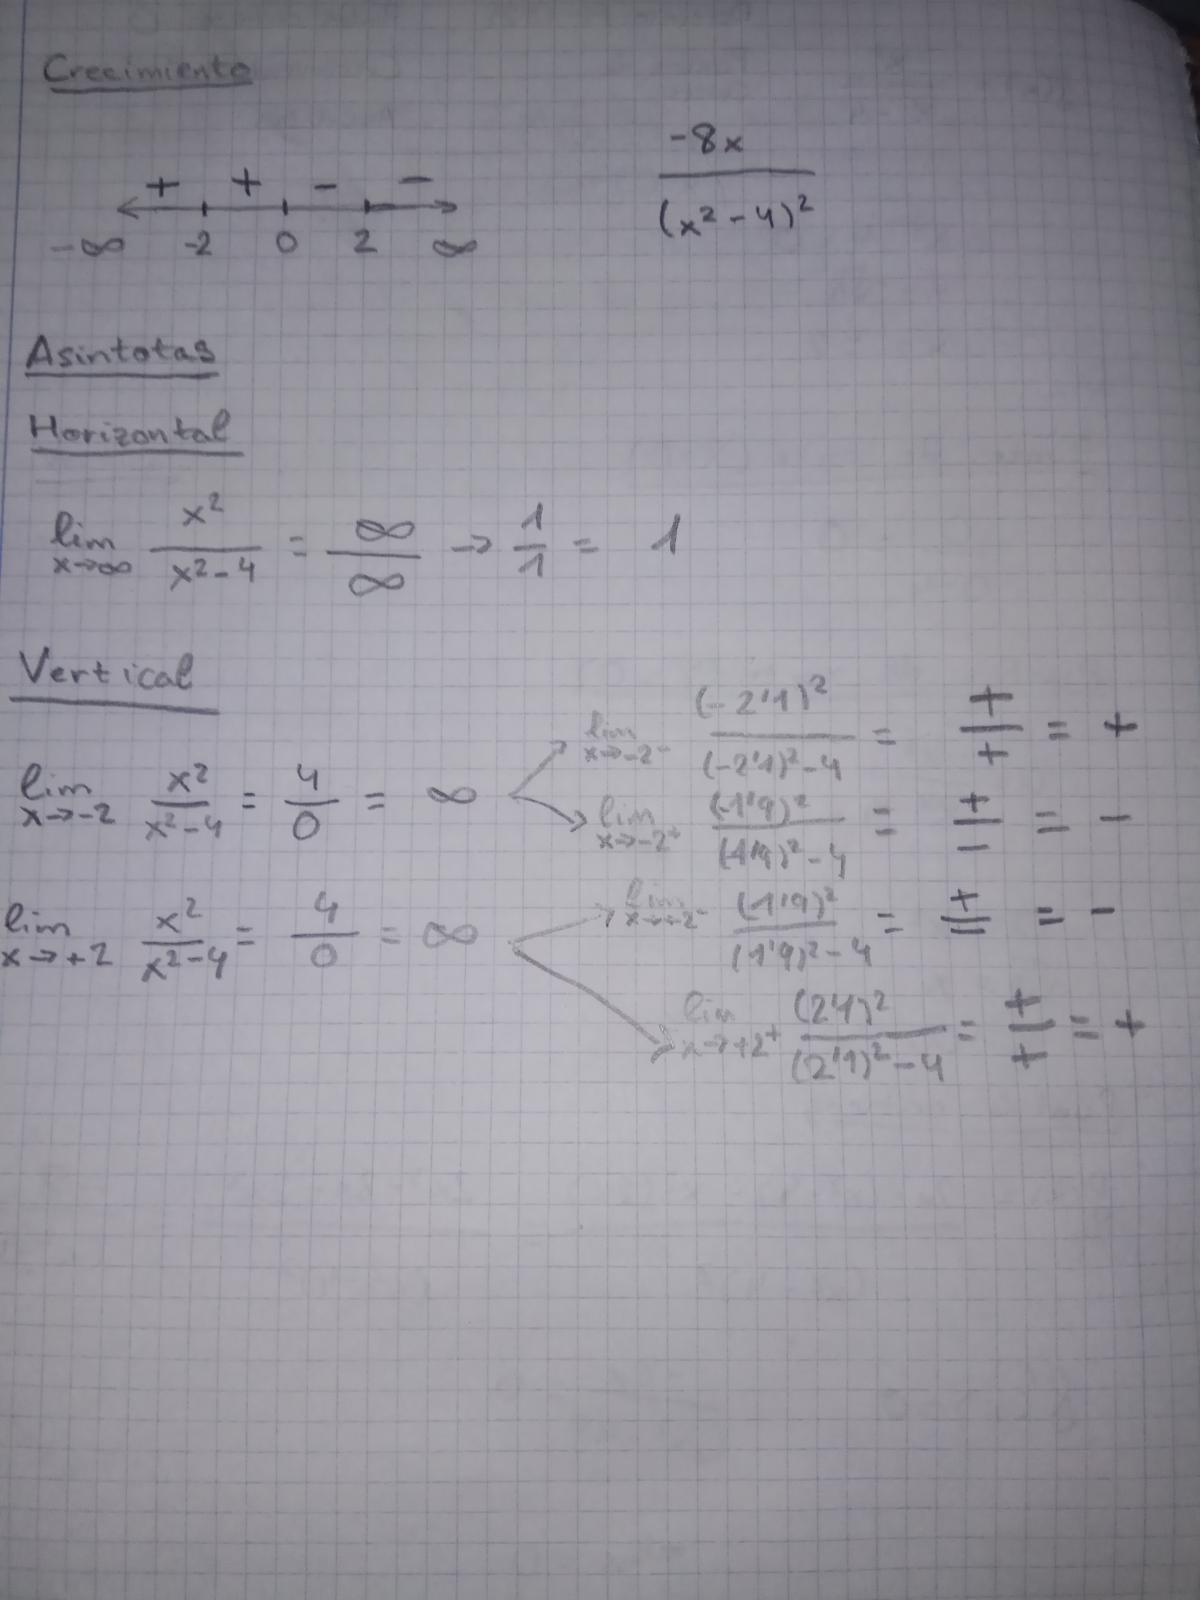 Crecimiento
+ + - -
-∞ -2 0 2 ∞
-8x / (x² - 4)²
Asintotas
Horizontal
lim x→∞ x² / x² - 4 = ∞ / ∞ → 1 / 1 = 1
Vertical
lim x→-2 x² / x² - 4 = 4 / 0 = ∞
lim x→-2⁻ (-2'1)² / (-2'1)² - 4 = + / + = +
lim x→-2⁺ (-1'9)² / (-1'9)² - 4 = + / - = -
lim x→+2 x² / x² - 4 = 4 / 0 = ∞
lim x→+2⁻ (1'9)² / (1'9)² - 4 = + / - = -
lim x→+2⁺ (2'1)² / (2'1)² - 4 = + / + = +